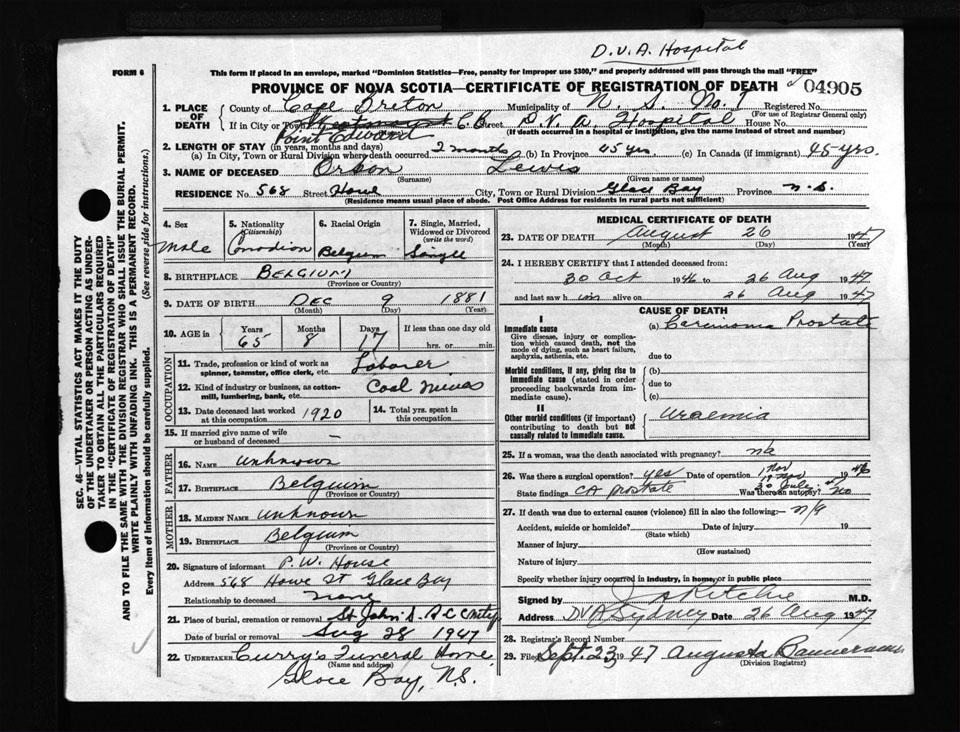 D.V.A. Hospital
FORM 6
This form if placed in an envelope, marked "Dominion Statistics—Free, penalty for improper use $300," and properly addressed will pass through the mail "FREE"
PROVINCE OF NOVA SCOTIA—CERTIFICATE OF REGISTRATION OF DEATH 04905
1. PLACE OF DEATH
County of Cape Breton Municipality of N. S. No. 1 Registered No.
(For use of Registrar General only)
If in City or Town C.B. Street D.V.A. Hospital House No.
Point Edward
(If death occurred in a hospital or institution, give the name instead of street and number)
2. LENGTH OF STAY (in years, months and days)
(a) In City, Town or Rural Division where death occurred 2 months (b) In Province 45 yrs. (c) In Canada (if immigrant) 45 yrs.
3. NAME OF DECEASED Orbon Lewis
(Surname) (Given name or names)
RESIDENCE No. 568 Street Howe City, Town or Rural Division Glace Bay Province N.S.
(Residence means usual place of abode. Post Office Address for residents in rural parts not sufficient)
4. Sex
Male
5. Nationality (Citizenship)
Canadian
6. Racial Origin
Belgium
7. Single, Married, Widowed or Divorced (write the word)
Single
8. BIRTHPLACE BELGIUM
(Province or Country)
9. DATE OF BIRTH DEC 9 1881
(Month) (Day) (Year)
10. AGE in Years Months Days If less than one day
65 8 17 hrs. or min.
OCCUPATION
11. Trade, profession or kind of work as spinner, teamster, office clerk, etc. Laborer
12. Kind of industry or business, as cotton-mill, lumbering, bank, etc. Coal Mines
13. Date deceased last worked at this occupation 1920
14. Total yrs. spent in this occupation
15. If married give name of wife or husband of deceased —
FATHER
16. NAME Unknown
17. BIRTHPLACE Belguim
(Province or Country)
MOTHER
18. MAIDEN NAME Unknown
19. BIRTHPLACE Belgium
(Province or Country)
20. Signature of informant P.W. House
Address 568 Howe St Glace Bay
Relationship to deceased none
21. Place of burial, cremation or removal St John's
Date of burial or removal Aug 28 1947
22. UNDERTAKER Curry's Funeral Home,
(Name and address)
Glace Bay, N.S.
MEDICAL CERTIFICATE OF DEATH
23. DATE OF DEATH August 26 1947
(Month) (Day) (Year)
24. I HEREBY CERTIFY that I attended deceased from:
30 Oct 1946 to 26 Aug 1947
and last saw him alive on 26 Aug 1947
CAUSE OF DEATH
I
Immediate cause (a) Carcinoma Prostate
Give disease, injury or complication which caused death, not the mode of dying, such as heart failure, asphyxia, asthenia, etc.
due to
Morbid conditions, if any, giving rise to immediate cause (stated in order proceeding backwards from immediate cause).
(b)
due to
(c)
II
Other morbid conditions (if important) contributing to death but not causally related to immediate cause.
Uraemia
25. If a woman, was the death associated with pregnancy? na
26. Was there a surgical operation? yes Date of operation 1 Nov 1946
State findings CA prostate Was there an autopsy? No
27. If death was due to external causes (violence) fill in also the following:— n/a
Accident, suicide or homicide? Date of injury 19
(State which)
Manner of injury
(How sustained)
Nature of injury
Specify whether injury occurred in industry, in home, or in public place
Signed by Ritchie M.D.
Address DVA Sydney Date 26 Aug 1947
28. Registrar's Record Number
29. Filed Sept. 23, 1947 Augusta
(Division Registrar)
SEC. 46—VITAL STATISTICS ACT MAKES IT THE DUTY
OF THE UNDERTAKER OR PERSON ACTING AS UNDER-
TAKER TO OBTAIN ALL THE PARTICULARS REQUIRED
IN THE "CERTIFICATE OF REGISTRATION OF DEATH"
AND TO FILE THE SAME WITH THE DIVISION REGISTRAR WHO SHALL ISSUE THE BURIAL PERMIT.
WRITE PLAINLY WITH UNFADING INK. THIS IS A PERMANENT RECORD.
Every item of information should be carefully supplied. (See reverse side for instructions.)